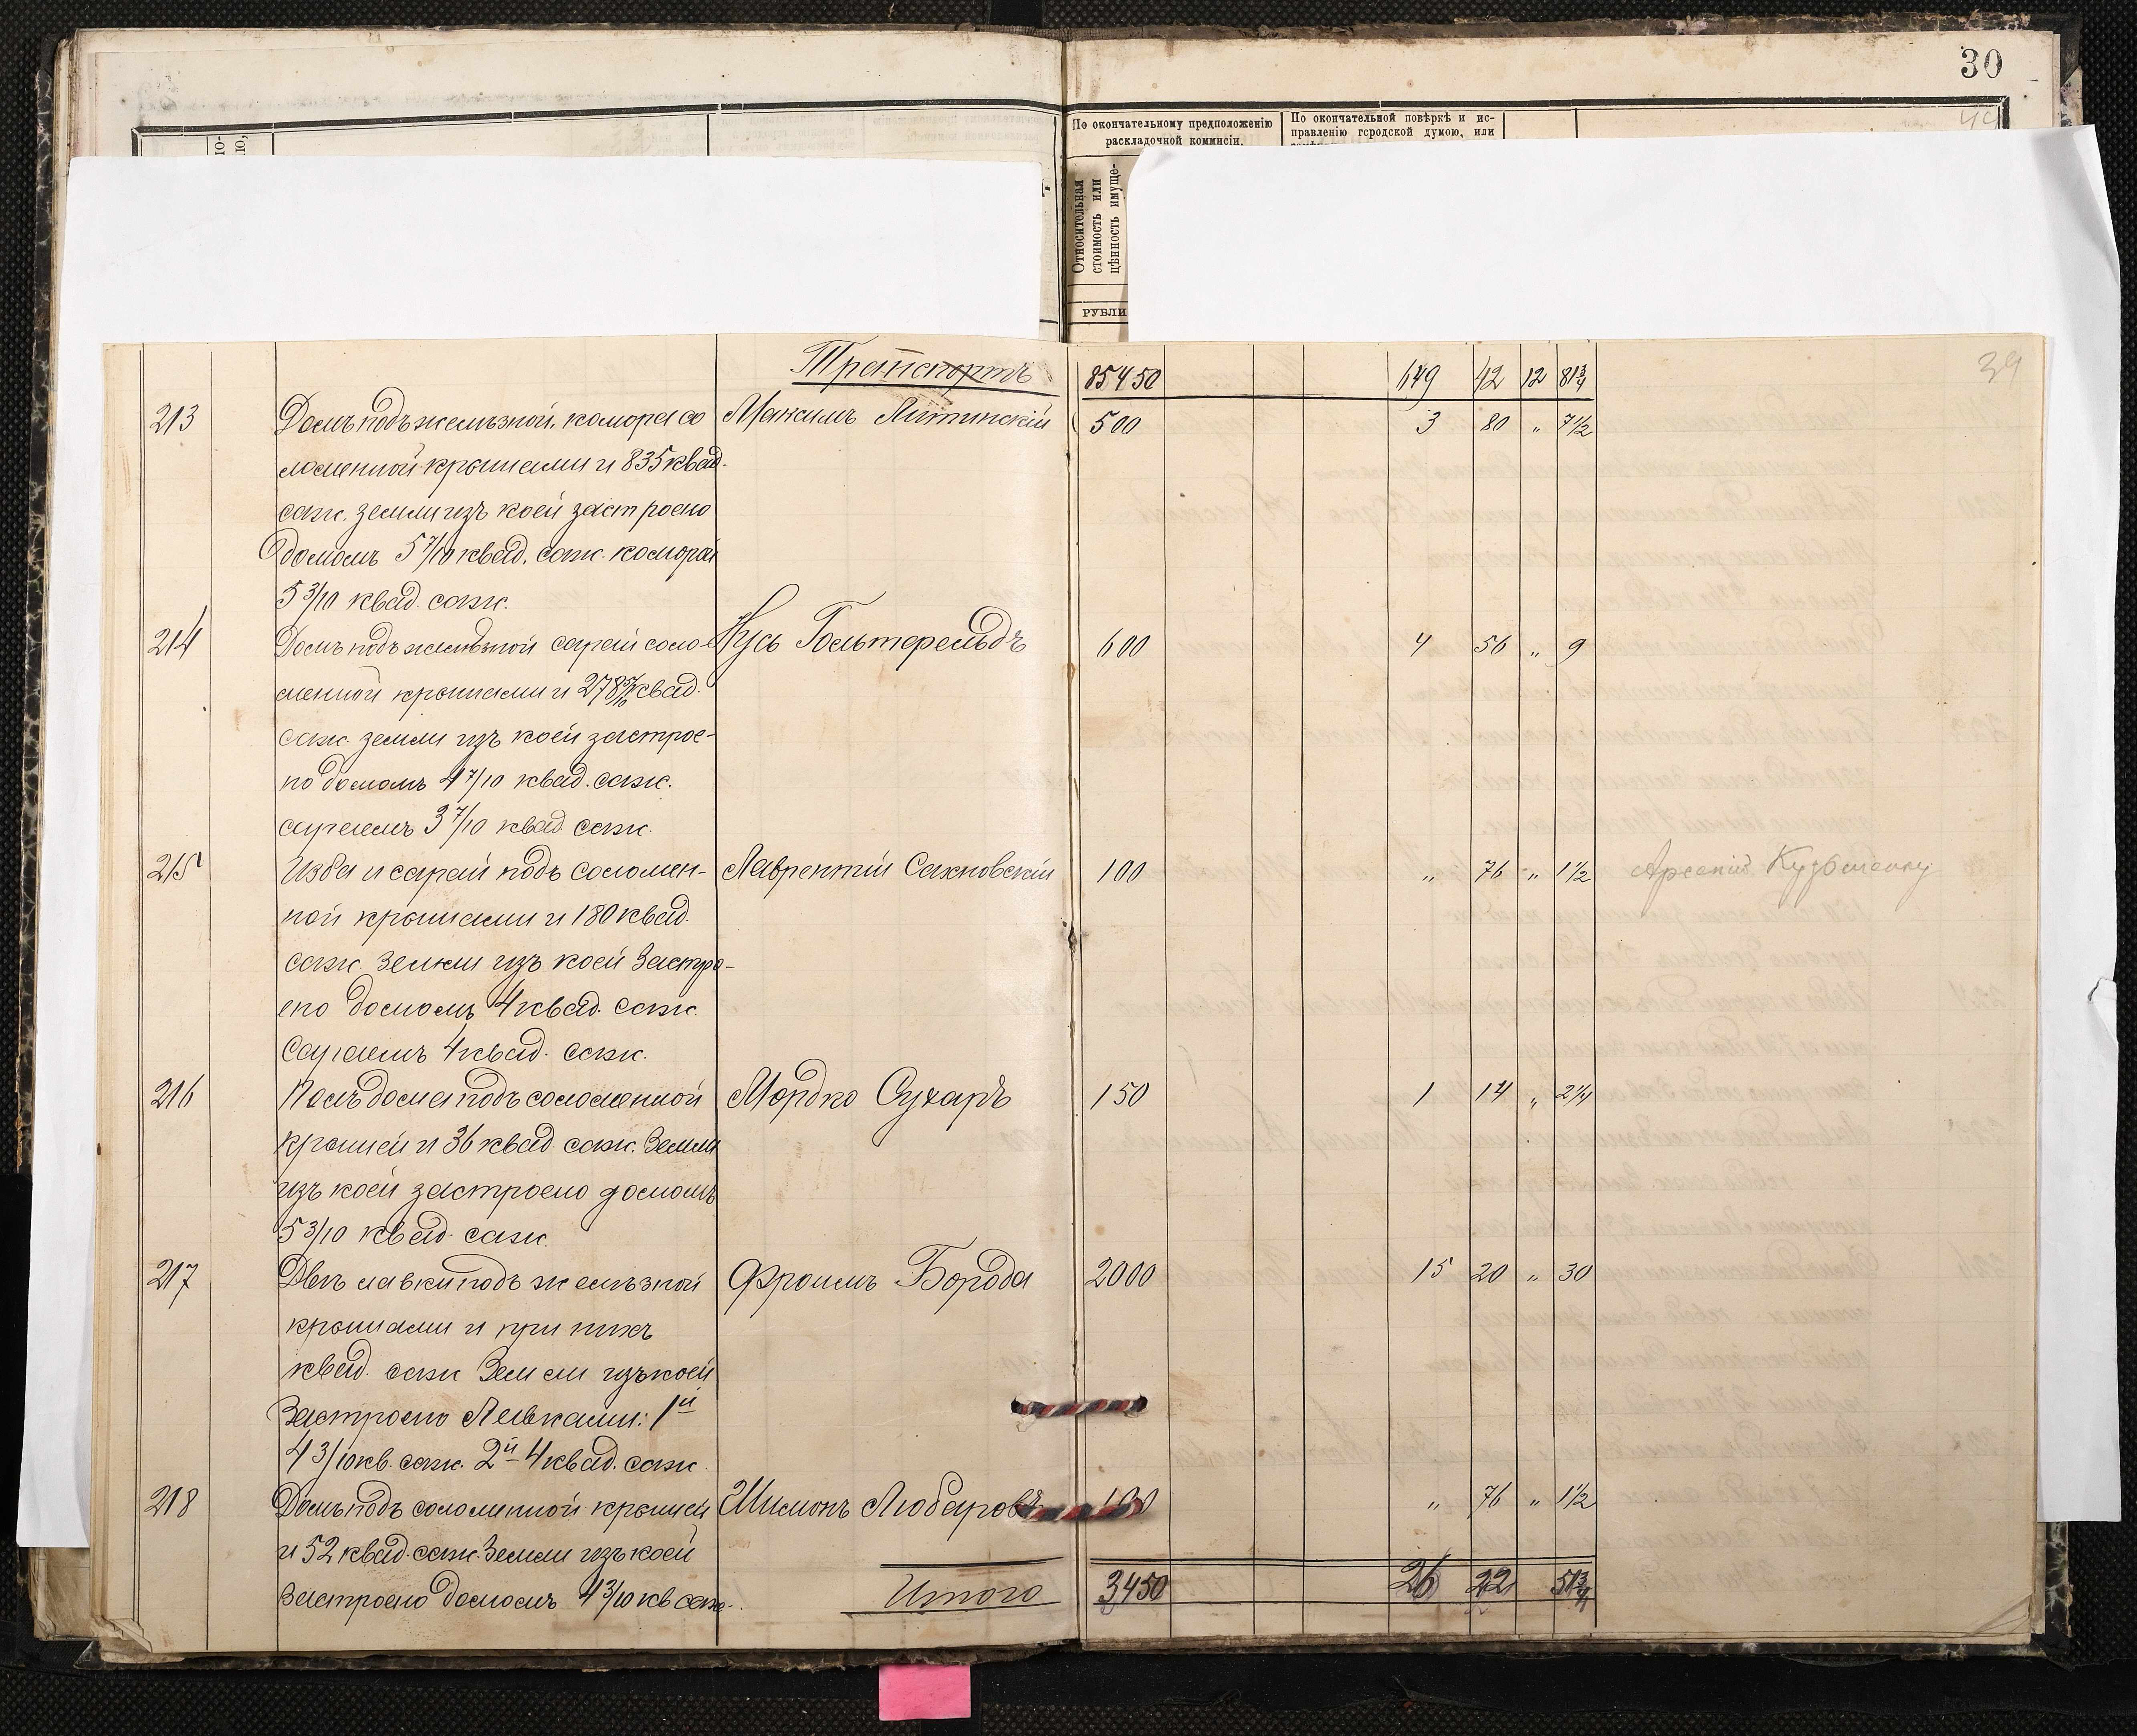 30
По окончательному предположенію
раскладочной коммисіи.
По окончательной повѣркѣ и ис-
правленію городской думою, или
Относительная
стоимость или
цѣнность имуще-
РУБЛИ
39
Транспортъ 85450 649 42 12 81 3/4
213 Домъ подъ желѣзной, комора со Максимъ Литинскій 500 3 80 „ 7 1/2
ломенной крышами и 835 квад.
саж. земли изъ коей застроено
домомъ 5 7/10 квад. саж. коморой
5 3/10 квад. саж.
214 Домъ подъ желѣзной сарай соло- Нусь 600 4 56 „ 9
менной крышами и 278 квад.
саж. земли изъ коей застрое-
но домомъ 4 7/10 квад. саж.
сараемъ 3 7/10 квад саж.
215 Изба и сарай подъ соломен- Лаврентій Сахновскій 100 „ 76 „ 1 1/2 Арсеній Кузьменку
ной крышами и 180 квад.
саж. земли изъ коей Застро-
ено домомъ 4 квад. саж.
Сараемъ 4 квад. саж.
216 Полъ дома подъ соломенной Мордко Сухарь 150 1 14 „ 2 1/4
крышей и 36 квад. саж. Земли
изъ коей застроено домомъ
5 3/10 квад. саж.
217 Двѣ лавки подъ желѣзной Фроимъ Борода 2000 15 20 „ 30
крышами и при нихъ
квад. саж Земли изъ коей
Застроено Лавками: 1й
4 3/10 кв. саж. 2й 4 квад. саж.
218 Домъ подъ соломенной крышей Шимонъ Любаровъ 100 „ 76 „ 1 1/2
и 52 квад. саж. Земли изъ коей
Застроено домомъ 4 3/10 кв саж.
Итого 3450 26 22 51 3/4